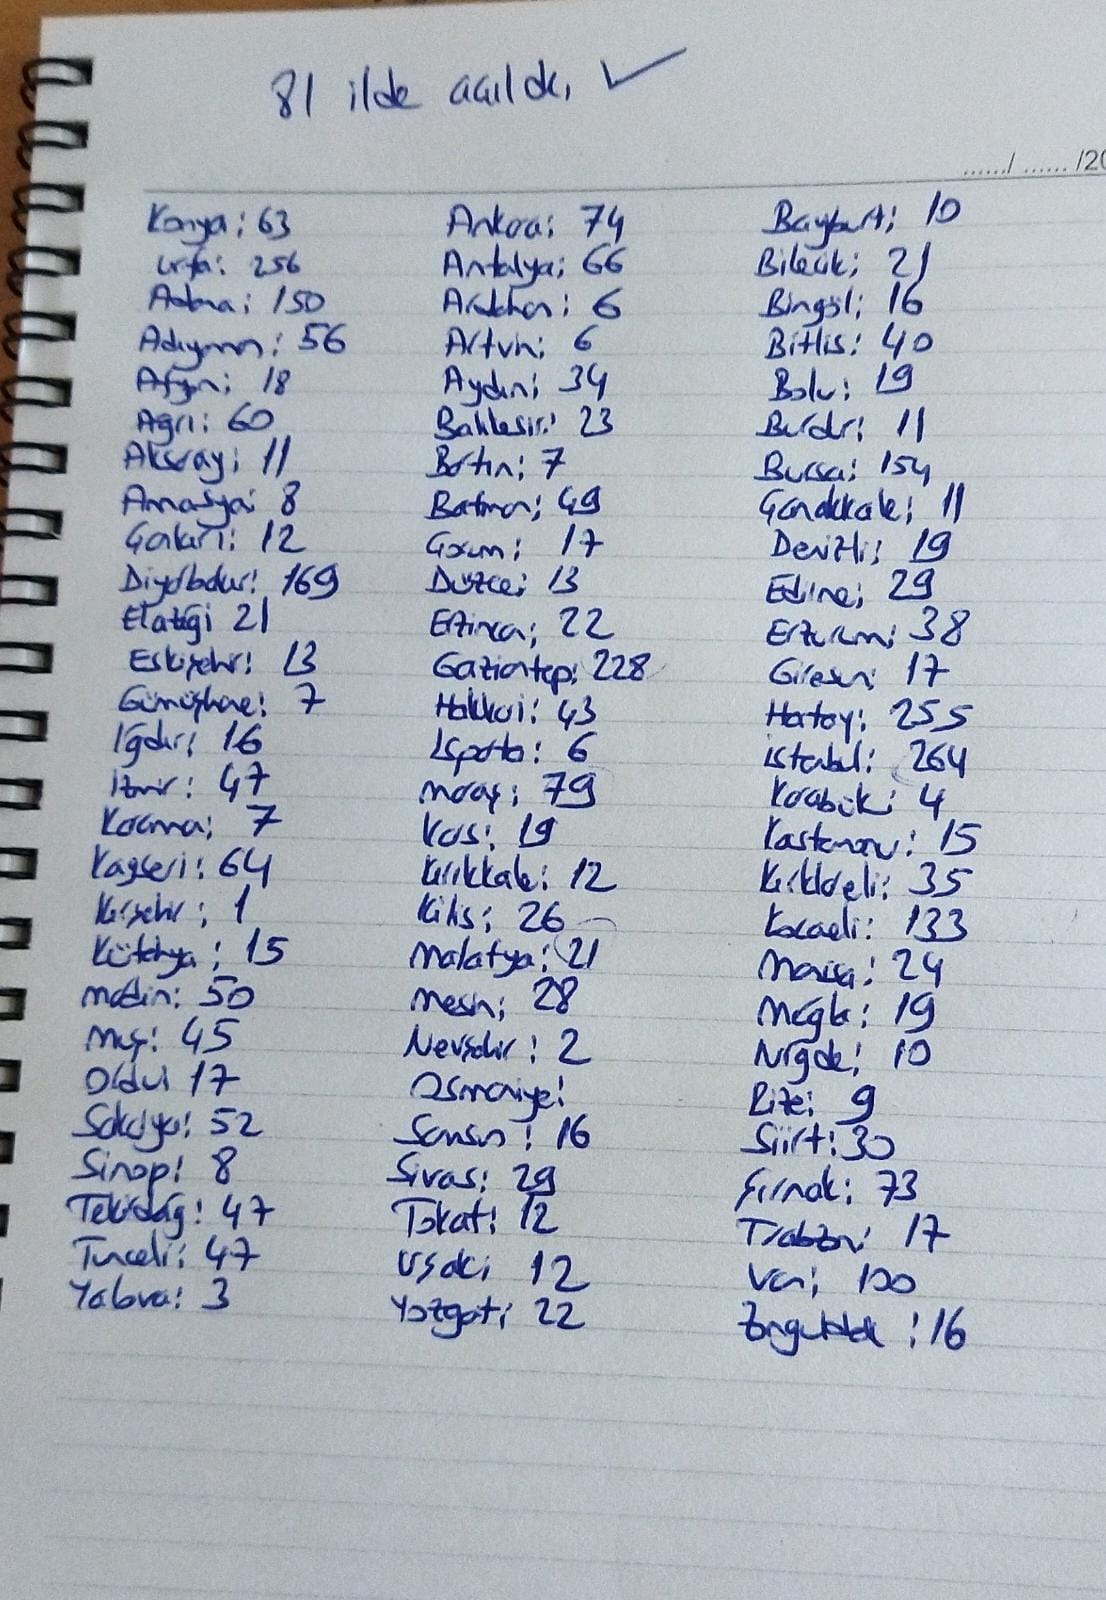 81 ilde açıldı ✓
....../ ...... /20
Konya: 63 Ankara: 74 Bayburt: 10
Urfa: 256 Antalya: 66 Bilecik: 21
Adana: 150 Ardahan: 6 Bingöl: 16
Adıyaman: 56 Artvin: 6 Bitlis: 40
Afyon: 18 Aydın: 34 Bolu: 19
Agrı: 60 Balıkesir: 23 Burdur: 11
Aksaray: 11 Bartın: 7 Bursa: 154
Amasya: 8 Batman: 49 Çanakkale: 11
Çankırı: 12 Çorum: 17 Denizli: 19
Diyarbakır: 169 Düzce: 13 Edirne: 29
Elazığ 21 Erzincan: 22 Erzurum: 38
Eskişehir: 13 Gaziantep: 228 Giresun: 17
Gümüşhane: 7 Hakkari: 43 Hatay: 255
Iğdır: 16 Isparta: 6 istanbul: 264
Izmir: 47 Maraş: 79 Karabük: 4
Karaman: 7 Kars: 19 Kastamonu: 15
Kayseri: 64 Kırıkkale: 12 Kırklareli: 35
Kırşehir: 1 Kilis: 26 Kocaeli: 133
Kütahya: 15 Malatya: 21 Manisa: 24
Mardin: 50 Mersin: 28 Muğla: 19
Muş: 45 Nevşehir: 2 Niğde: 10
Ordu: 17 Osmaniye: Rize: 9
Sakarya: 52 Samsun: 16 Siirt: 30
Sinop: 8 Sivas: 29 Şırnak: 73
Tekirdağ: 47 Tokat: 12 Trabzon: 17
Tunceli: 47 Uşak: 12 Van: 100
Yalova: 3 Yozgat: 22 Zonguldak: 16